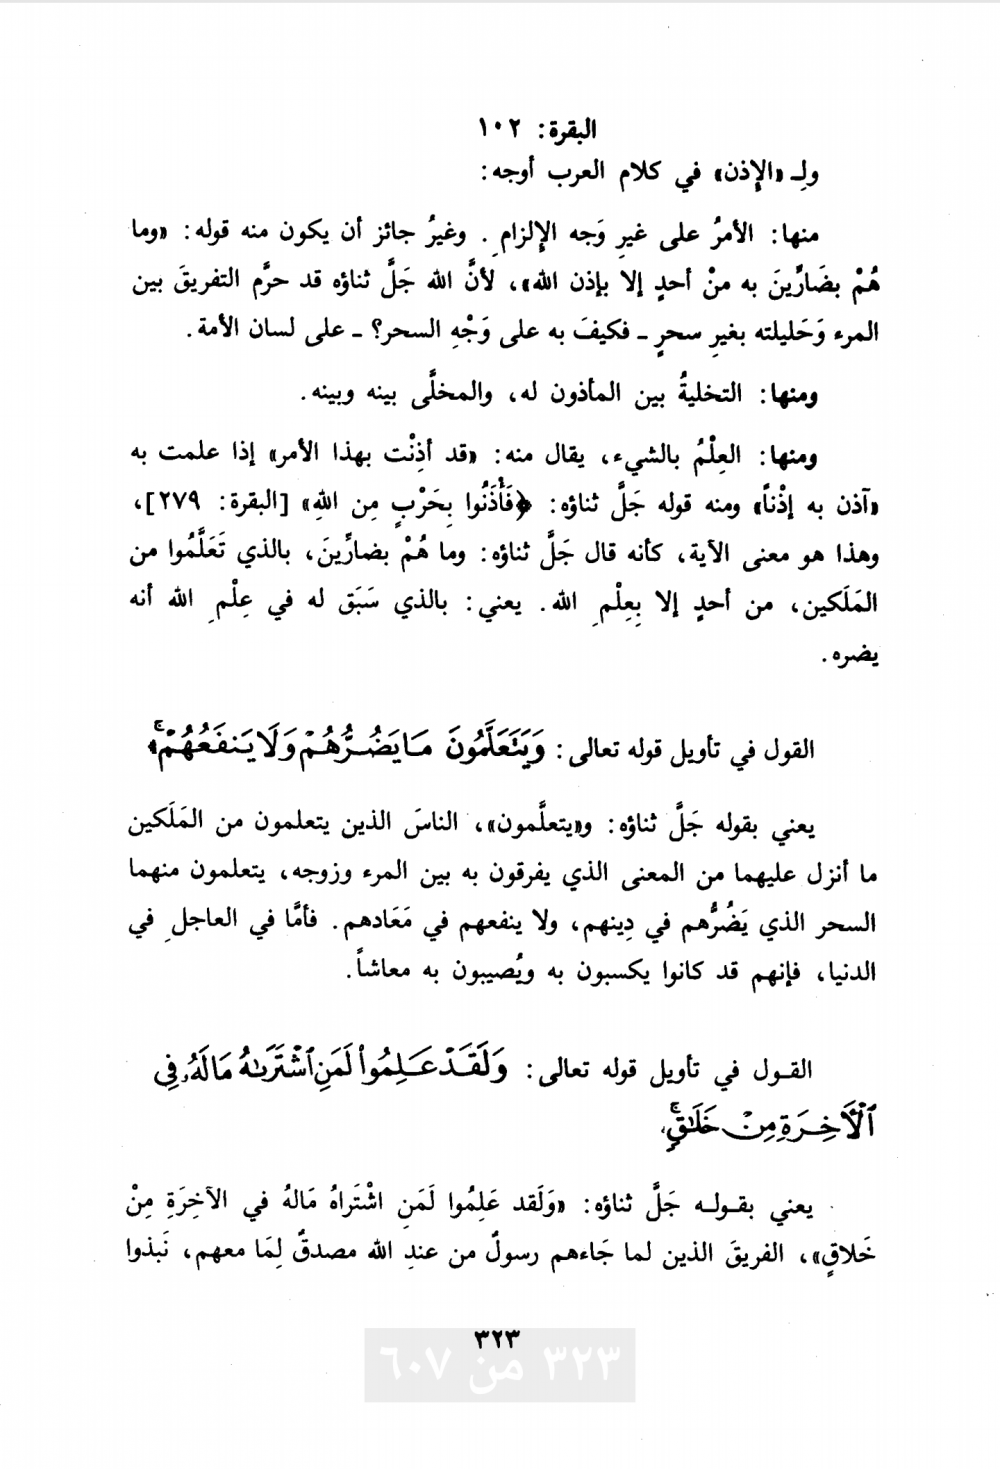 البقرة: ١٠٢
ولـ «الإذن» في كلام العرب أوجه:
منها: الأمرُ على غيرِ وَجه الإلزامِ. وغيرُ جائز أن يكون منه قوله: «وما
هُمْ بضَارِّينَ به منْ أحدٍ إلا بإذن الله»، لأنَّ الله جَلَّ ثناؤه قد حرَّم التفريقَ بين
المرء وَحَليلته بغيرِ سحرٍ ـ فكيفَ به على وَجْهِ السحر؟ ـ على لسان الأمة.
ومنها: التخليةُ بين المأذون له، والمخلَّى بينه وبينه.
ومنها: العِلْمُ بالشيء، يقال منه: «قد أذِنْت بهذا الأمر» إذا علمت به
«آذن به إذْناً» ومنه قوله جَلَّ ثناؤه: ﴿فَأْذَنُوا بِحَرْبٍ مِن اللهِ» [البقرة: ٢٧٩]،
وهذا هو معنى الآية، كأنه قال جَلَّ ثناؤه: وما هُمْ بضارِّينَ، بالذي تَعَلَّمُوا من
المَلَكين، من أحدٍ إلا بِعِلْمِ الله. يعني: بالذي سَبَق له في عِلْمِ الله أنه
يضره.
القول في تأويل قوله تعالى: وَيَتَعَلَّمُونَ مَا يَضُرُّهُمْ وَلَا يَنفَعُهُمْۚ﴾
يعني بقوله جَلَّ ثناؤه: و«يتعلَّمون»، الناسَ الذين يتعلمون من المَلَكين
ما أنزل عليهما من المعنى الذي يفرقون به بين المرء وزوجه، يتعلمون منهما
السحر الذي يَضُرُّهم في دِينهم، ولا ينفعهم في مَعَادهم. فأمَّا في العاجلِ في
الدنيا، فإنهم قد كانوا يكسبون به ويُصيبون به معاشاً.
القـول في تأويل قوله تعالى: وَلَقَدْ عَلِمُوا۟ لَمَنِ ٱشْتَرَىٰهُ مَا لَهُۥ فِى
ٱلْأَخِرَةِ مِنْ خَلَـٰقٍۚ
يعني بقـولـه جَلَّ ثناؤه: «وَلَقد عَلِمُوا لَمَنِ اشْتَراهُ مَالهُ في الآخِرَةِ مِنْ
خَلاقٍ»، الفريقَ الذين لما جَاءهم رسولٌ من عندِ الله مصدقٌ لِمَا معهم، نَبذوا
٣٢٣
٣٢٣ من ٦٠٧